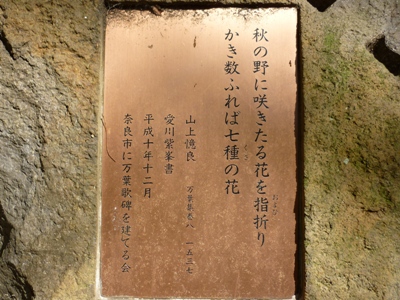 秋の野に咲きたる花を指折り
かき数ふれば七種の花
山上憶良
万葉集巻八 一五三七
愛川紫峯書
平成十年十二月
奈良市に万葉歌碑を建てる会